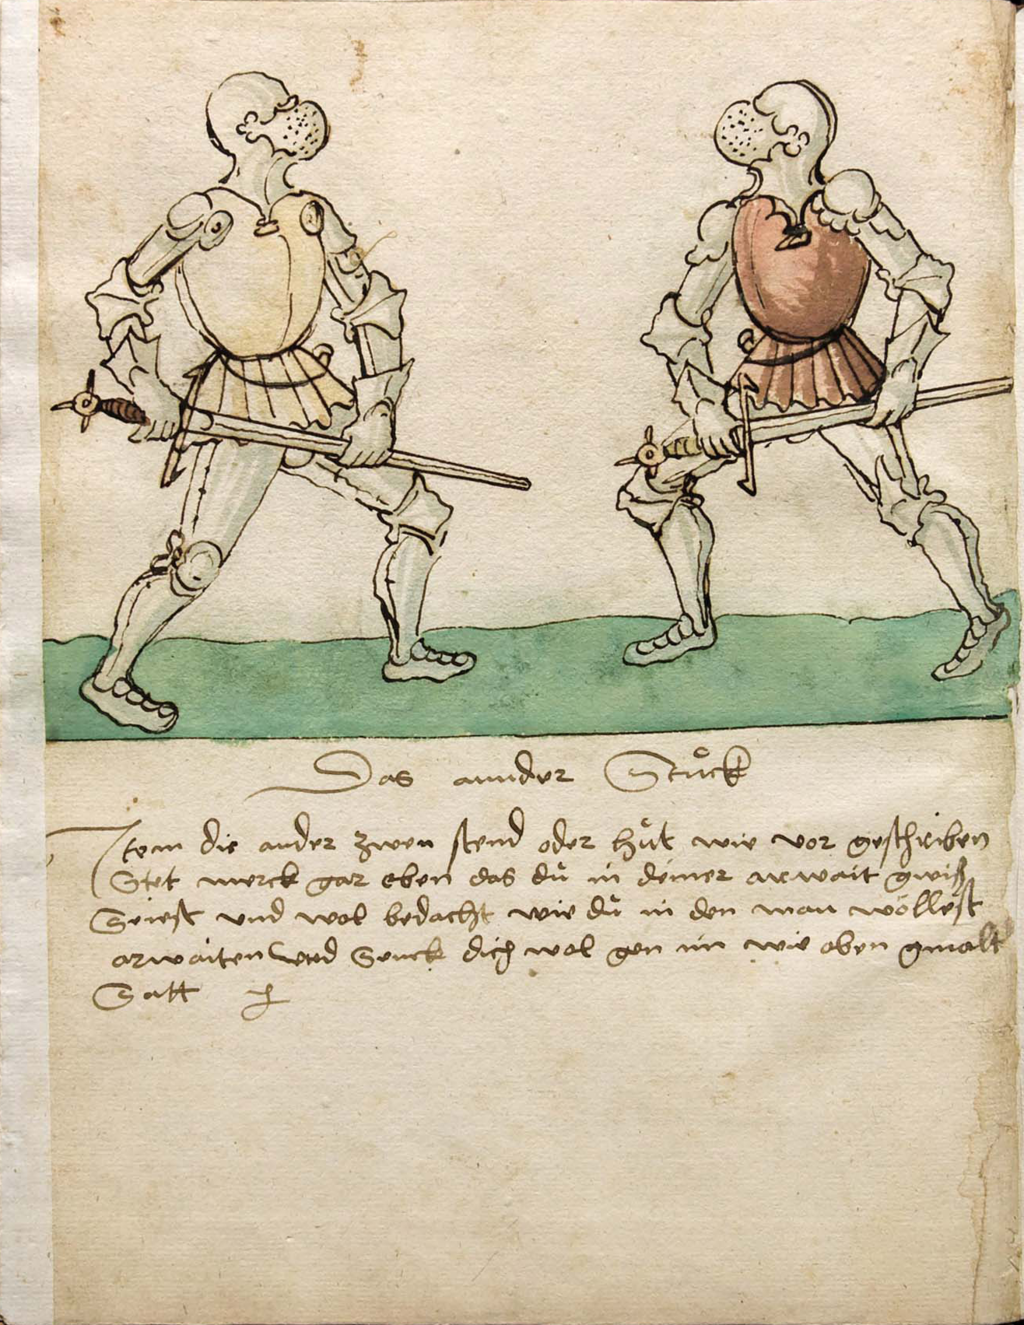 Das annder Stuͤck
Item die ander zwen stend oder huͤt wie vor geschriben
Stet merck gar eben das duͤ in deiner arwait gwiß
Seiest vnd wol bedacht wie duͤ in den man wöllest
arwaiten vnd Senck dich wol gen im wie oben gmalt
Satt